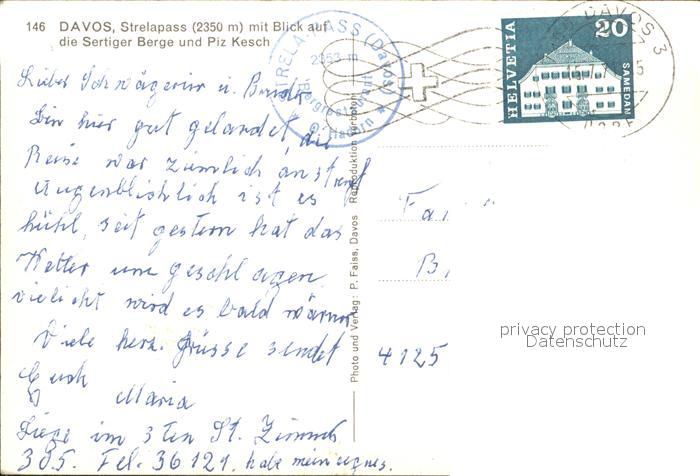 146 DAVOS, Strelapass (2350 m) mit Blick auf
die Sertiger Berge und Piz Kesch
STRELA-PASS (Davos)
2353 m
Bergrestaurant
DAVOS 3
HELVETIA
20
SAMEDAN
Lieber Schwägerin u. Bruder
Bin hier gut gelandet, die
Reise war ziemlich anstreng
Augenblicklich ist es
kühl, seit gestern hat das
Wetter umgeschlagen,
vielicht wird es bald wärmer
Viele herz. Grüsse sendet
Euch Maria
Liege im 3ten St. Zimmer
305. Tel. 36121. habe mein eignes.
Photo und Verlag: P. Faiss, Davos Reproduktion verboten
Fa
B,
4125
privacy protection
Datenschutz